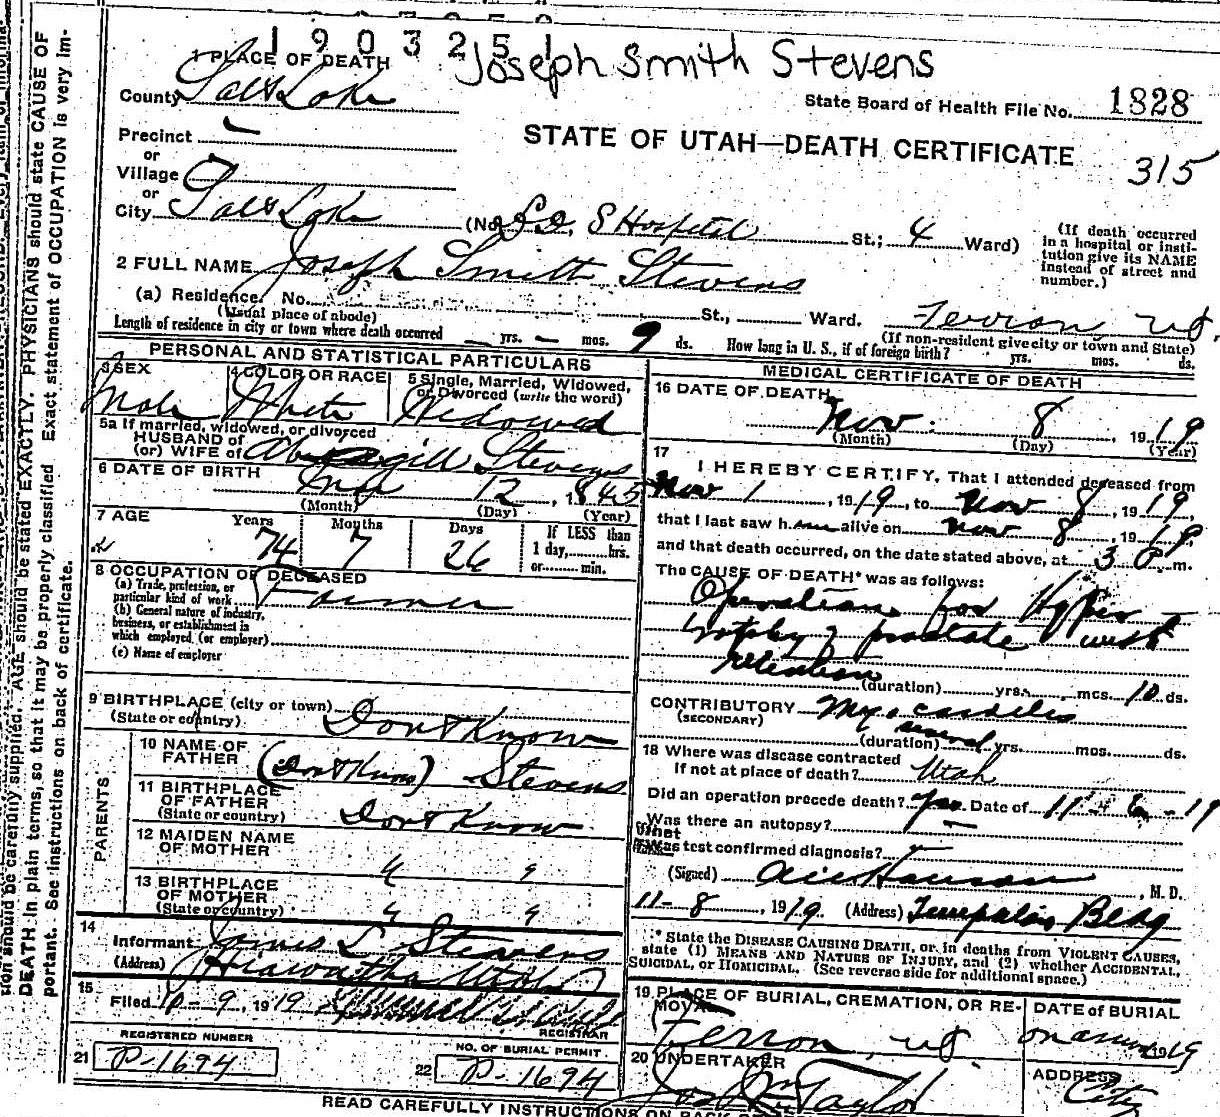 1903251 Joseph Smith Stevens
1 PLACE OF DEATH
County Salt Lake
State Board of Health File No. 1828
Precinct —
STATE OF UTAH—DEATH CERTIFICATE
315
or
Village
or
City Salt Lake (No. L.D.S Hospital St.; 4 Ward)
(If death occurred in a hospital or insti-
tution give its NAME
instead of street and
number.)
2 FULL NAME Joseph Smith Stevens
(a) Residence. No. St., Ward. Ferron Ut.
(Usual place of abode) (If non-resident give city or town and State)
Length of residence in city or town where death occurred yrs. — mos. 9 ds. How long in U. S., if of foreign birth? yrs. mos. ds.
PERSONAL AND STATISTICAL PARTICULARS
3 SEX Male
4 COLOR OR RACE White
5 Single, Married, Widowed,
or Divorced (write the word)
Widowed
5a If married, widowed, or divorced
HUSBAND of
(or) WIFE of Abagill Stevens
6 DATE OF BIRTH 12, 1845
(Month) (Day) (Year)
7 AGE Years 74 Months 7 Days 26
If LESS than
1 day, hrs.
or min.
8 OCCUPATION OF DECEASED
(a) Trade, profession, or
particular kind of work Farmer
(b) General nature of industry,
business, or establishment in
which employed (or employer)
(c) Name of employer
9 BIRTHPLACE (city or town)
(State or country) Don't Know
PARENTS
10 NAME OF
FATHER (Don't Know) Stevens
11 BIRTHPLACE
OF FATHER
(State or country) Don't Know
12 MAIDEN NAME
OF MOTHER " "
13 BIRTHPLACE
OF MOTHER
(State or country) " "
14
Informant James L Stevens
(Address) Hiawatha Utah
15
Filed 10-9, 1919
REGISTRAR
REGISTERED NUMBER
21 P-1694
NO. OF BURIAL PERMIT
22 P-1694
MEDICAL CERTIFICATE OF DEATH
16 DATE OF DEATH
Nov. 8, 1919
(Month) (Day) (Year)
17
I HEREBY CERTIFY, That I attended deceased from
Nov 1, 1919, to Nov 8, 1919,
that I last saw him alive on Nov 8, 1919,
and that death occurred, on the date stated above, at 3 m.
The CAUSE OF DEATH* was as follows:
Operation for Hyper
trophy of prostate with
retention
(duration) yrs. mos. 10 ds.
CONTRIBUTORY Myocarditis
(SECONDARY)
(duration) several yrs. mos. ds.
18 Where was disease contracted
If not at place of death? Utah
Did an operation precede death? Yes Date of 11-6-19
Was there an autopsy? —
What
test confirmed diagnosis?
(Signed) M. D.
11-8, 1919 (Address) Templeton Bldg
* State the DISEASE CAUSING DEATH, or, in deaths from VIOLENT CAUSES,
state (1) MEANS AND NATURE OF INJURY, and (2) whether ACCIDENTAL,
SUICIDAL, or HOMICIDAL. (See reverse side for additional space.)
19 PLACE OF BURIAL, CREMATION, OR RE-
MOVAL
Ferron, Ut.
DATE of BURIAL
1919
20 UNDERTAKER
Jos Wm Taylor
ADDRESS
City
READ CAREFULLY INSTRUCTIONS ON BACK
tion should be carefully supplied. AGE should be stated EXACTLY. PHYSICIANS should state CAUSE OF
DEATH in plain terms, so that it may be properly classified. Exact statement of OCCUPATION is very im-
portant. See instructions on back of certificate.